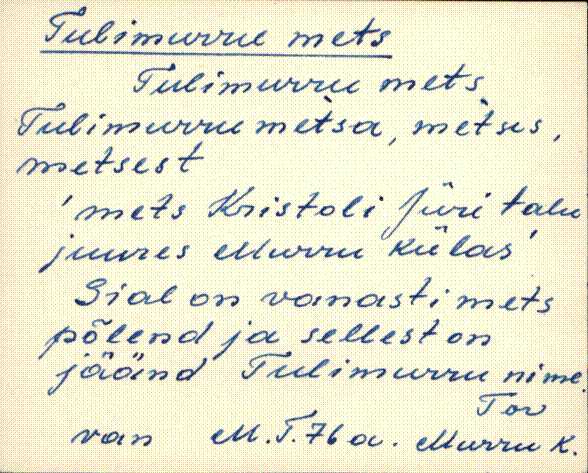 Tulimurru mets
Tulimurru mets,
Tulimurru mètsa, mètsus,
metsest
'mets Kristoli Jüri talu
juures Murru külas'
Sial on vanasti mets
põlend ja sellest on
jäänd Tulimurru nime.
Tor
van M.T. 76 a. Murru k.